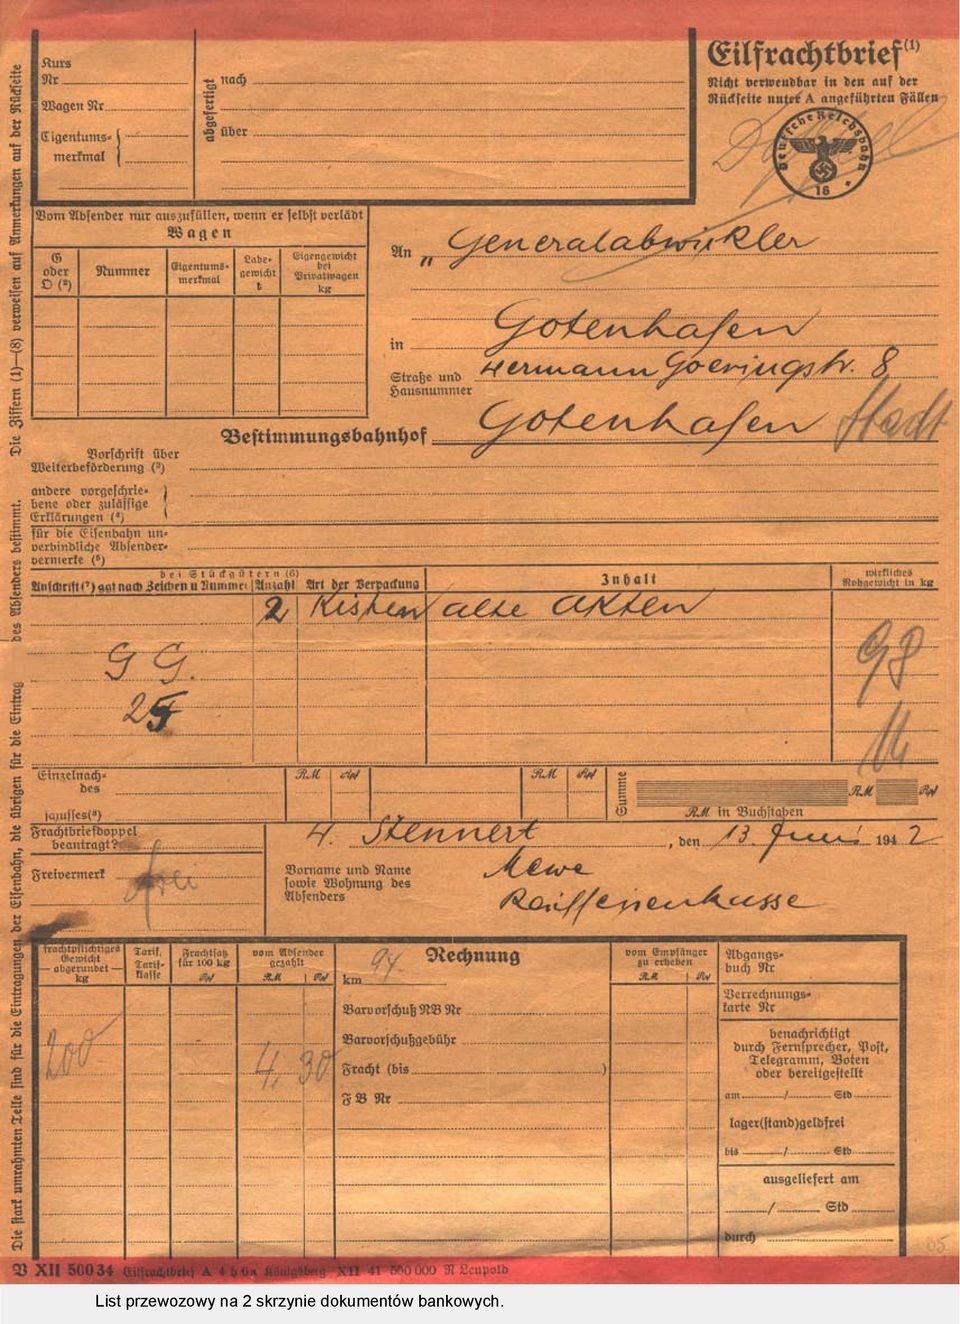 Eilfrachtbrief (1)
Nicht verwendbar in den auf der
Rückseite unter A angeführten Fällen
Deutsche Reichsbahn
16
Kurs
Nr
Wagen Nr
Eigentums-
merkmal
abgefertigt
nach
über
Vom Absender nur auszufüllen, wenn er selbst verlädt
Wagen
G oder O (2)
Nummer
Eigentums-
merkmal
Lade-
gewicht
t
Eigengewicht
bei
Privatwagen
kg
An „ Generalabwickler
in Gotenhafen
Straße und
Hausnummer
Hermann Goeringstr. 8
Bestimmungsbahnhof Gotenhafen Stadt
Vorschrift über
Weiterbeförderung (3)
andere vorgeschrie-
bene oder zulässige
Erklärungen (4)
für die Eisenbahn un-
verbindliche Absender-
vermerke (5)
bei Stückgütern (6)
Anschrift (7) ggf nach Zeichen u Nummer
Anzahl
Art der Verpackung
Inhalt
wirkliches
Rohgewicht in kg
2 Kisten alte Akten
G G.
25
98
Einzelnach-
des
RM Rpf
RM Rpf
Summe
RM Rpf
RM in Buchstaben
Frachtbriefdoppel
beantragt?
Freivermerk
frei
Stennert, den 13. Juni 1942
Vorname und Name
sowie Wohnung des
Absenders
Mewe
Raiffeisenkasse
frachtpflichtiges
Gewicht
— abgerundet —
kg
Tarif,
Tarif-
klasse
Frachtsatz
für 100 kg
Rpf
vom Absender
gezahlt
RM Rpf
Rechnung
km 94
Barvorschuß NB Nr
Barvorschußgebühr
Fracht (bis )
F B Nr
200
4,30
vom Empfänger
zu erheben
RM Rpf
Abgangs-
buch Nr
Verrechnungs-
karte Nr
benachrichtigt
durch Fernsprecher, Post,
Telegramm, Boten
oder bereitgestellt
am / Std
lager(stand)geldfrei
bis / Std
ausgeliefert am
/ Std
durch
05
Die stark umrahmten Teile sind für die Eintragungen der Eisenbahn, die übrigen für die Eintrag des Absenders bestimmt. Die Ziffern (1)—(8) verweisen auf Anmerkungen auf der Rückseite
B XII 50034 Eilfrachtbrief A 4 h 6a Königsberg XII 41 500 000 R Leupold
List przewozowy na 2 skrzynie dokumentów bankowych.